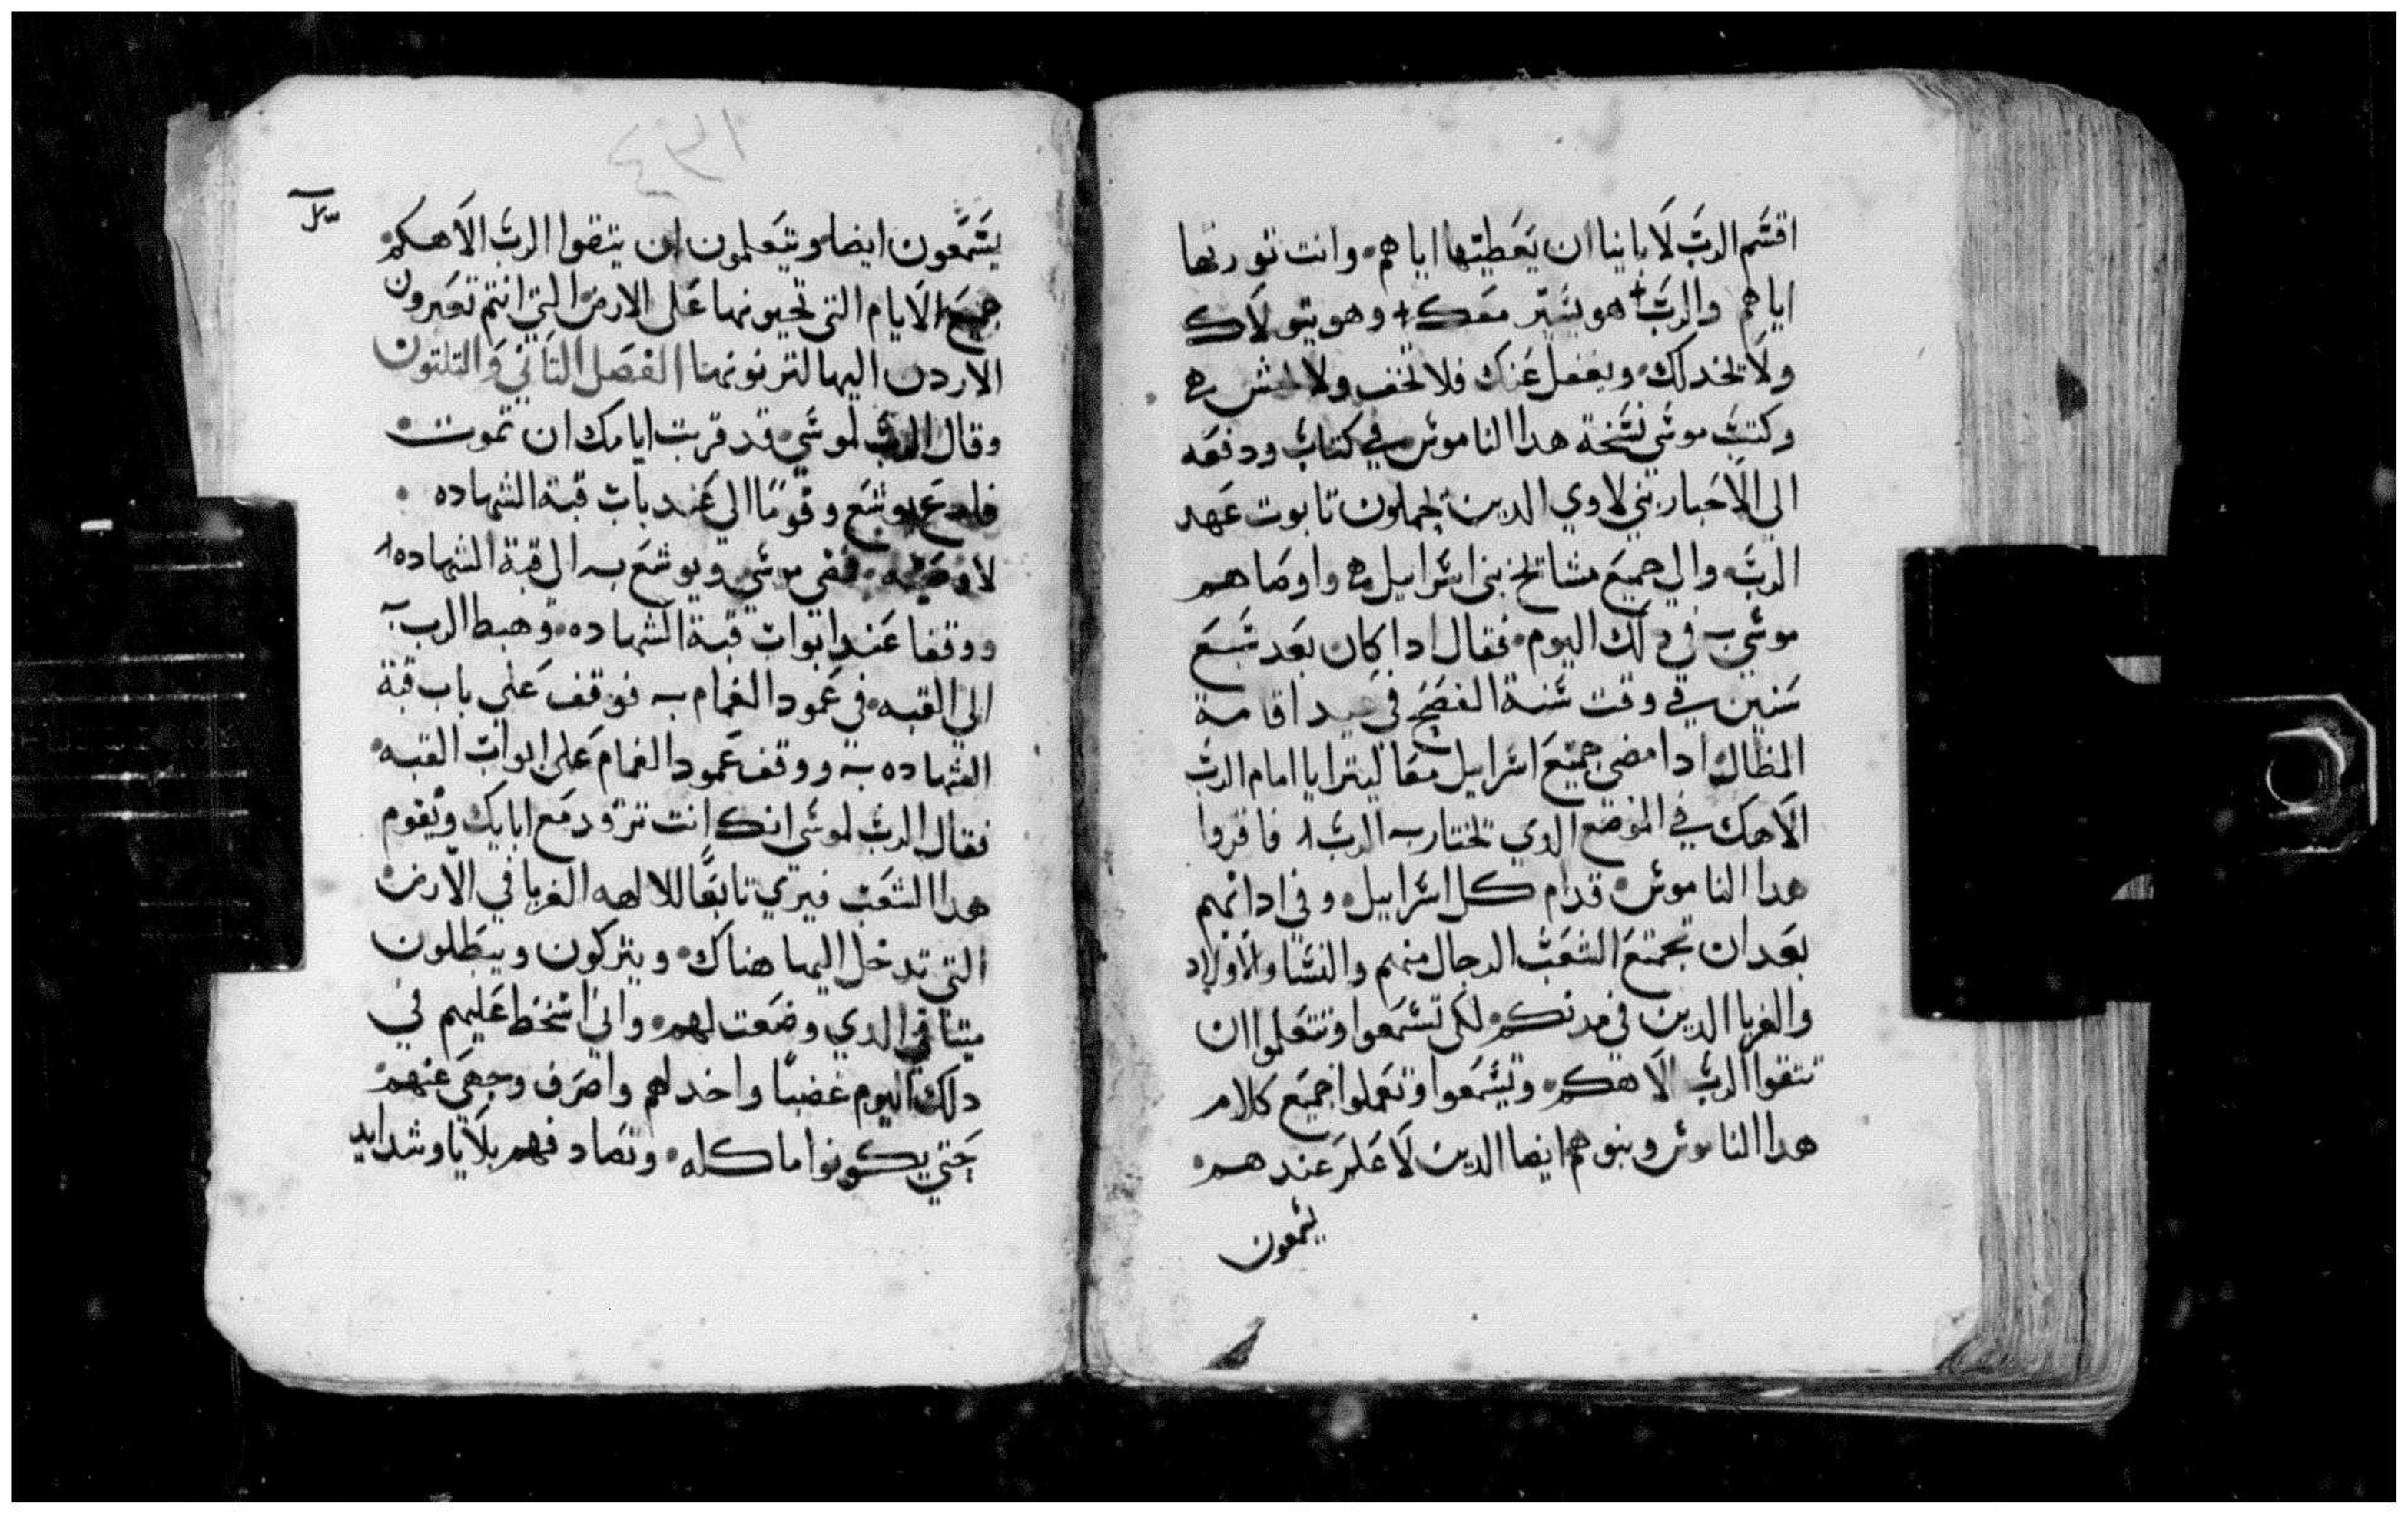 اقسم الرب لاباينا ان يعطيها اياهم. وانت تورتها
اياهم والرب هو يسير معك وهو يتولاك
ولا يخدلك. ويغفل عنك فلا تخف ولا تخش
وكتب موسى نسخة هدا الناموس في كتاب ودفعه
الي الاحبار بني لاوي الدين يحملون تابوت عهد
الرب. والي جميع مشايخ بني اسراييل واوصاهم
موسي في دلك اليوم. فقال ادا كان بعد سبع
سنين في وقت سنة الفصح في عيد اقامة
المظال. ادا مضي جميع اسراييل معا ليترايا امام الرب
الاهك في الموضع الدي يختاره الرب فاقروا
هدا الناموس. قدام كل اسراييل. وفي ادانهم
بعد ان تجمتع الشعب الرجال منهم والنسا والاولاد
والغربا الدين في مدنكم. لكي تسمعوا وتتعلموا ان
تتقوا الرب الاهكم. وتسمعوا وتعملوا جميع كلام
هدا الناموس وبنوهم ايضا الدين لا علم عندهم.
يسمعون
٤٣١
يسمعون ايضا. ويتعلمون ان يتقوا الرب الاهكم.
جميع الايام التي تحيونها على الارض التي انتم تعبرون
الاردن اليها لترتونها الفصل التاني والتلتون
وقال الرب لموسي. قد قربت ايامك ان تموت.
فادع يوشع وقوما الي عند باب قبة الشهاده.
لاوصيه. فمضي موسي ويوشع الي قبة الشهاده
ووقفا عند ابواب قبة الشهاده. وهبط الرب
الي القبه. في عمود الغمام فوقف علي باب قبة
الشهاده ووقف عمود الغمام على ابواب القبه.
فقال الرب لموسى انك انت ترقد مع ابايك ويقوم
هدا الشعب فيزني تابعا للالهه الغربا في الارض.
التي تدخل اليها هناك. ويتركون ويبطلون
ميتاقي الدي وضعت لهم. واني اسخط عليهم في
دلك اليوم غضبا واخدلهم واصرف وجهي عنهم.
حتي يكونوا ماكله. وتصادفهم بلايا وشدايد